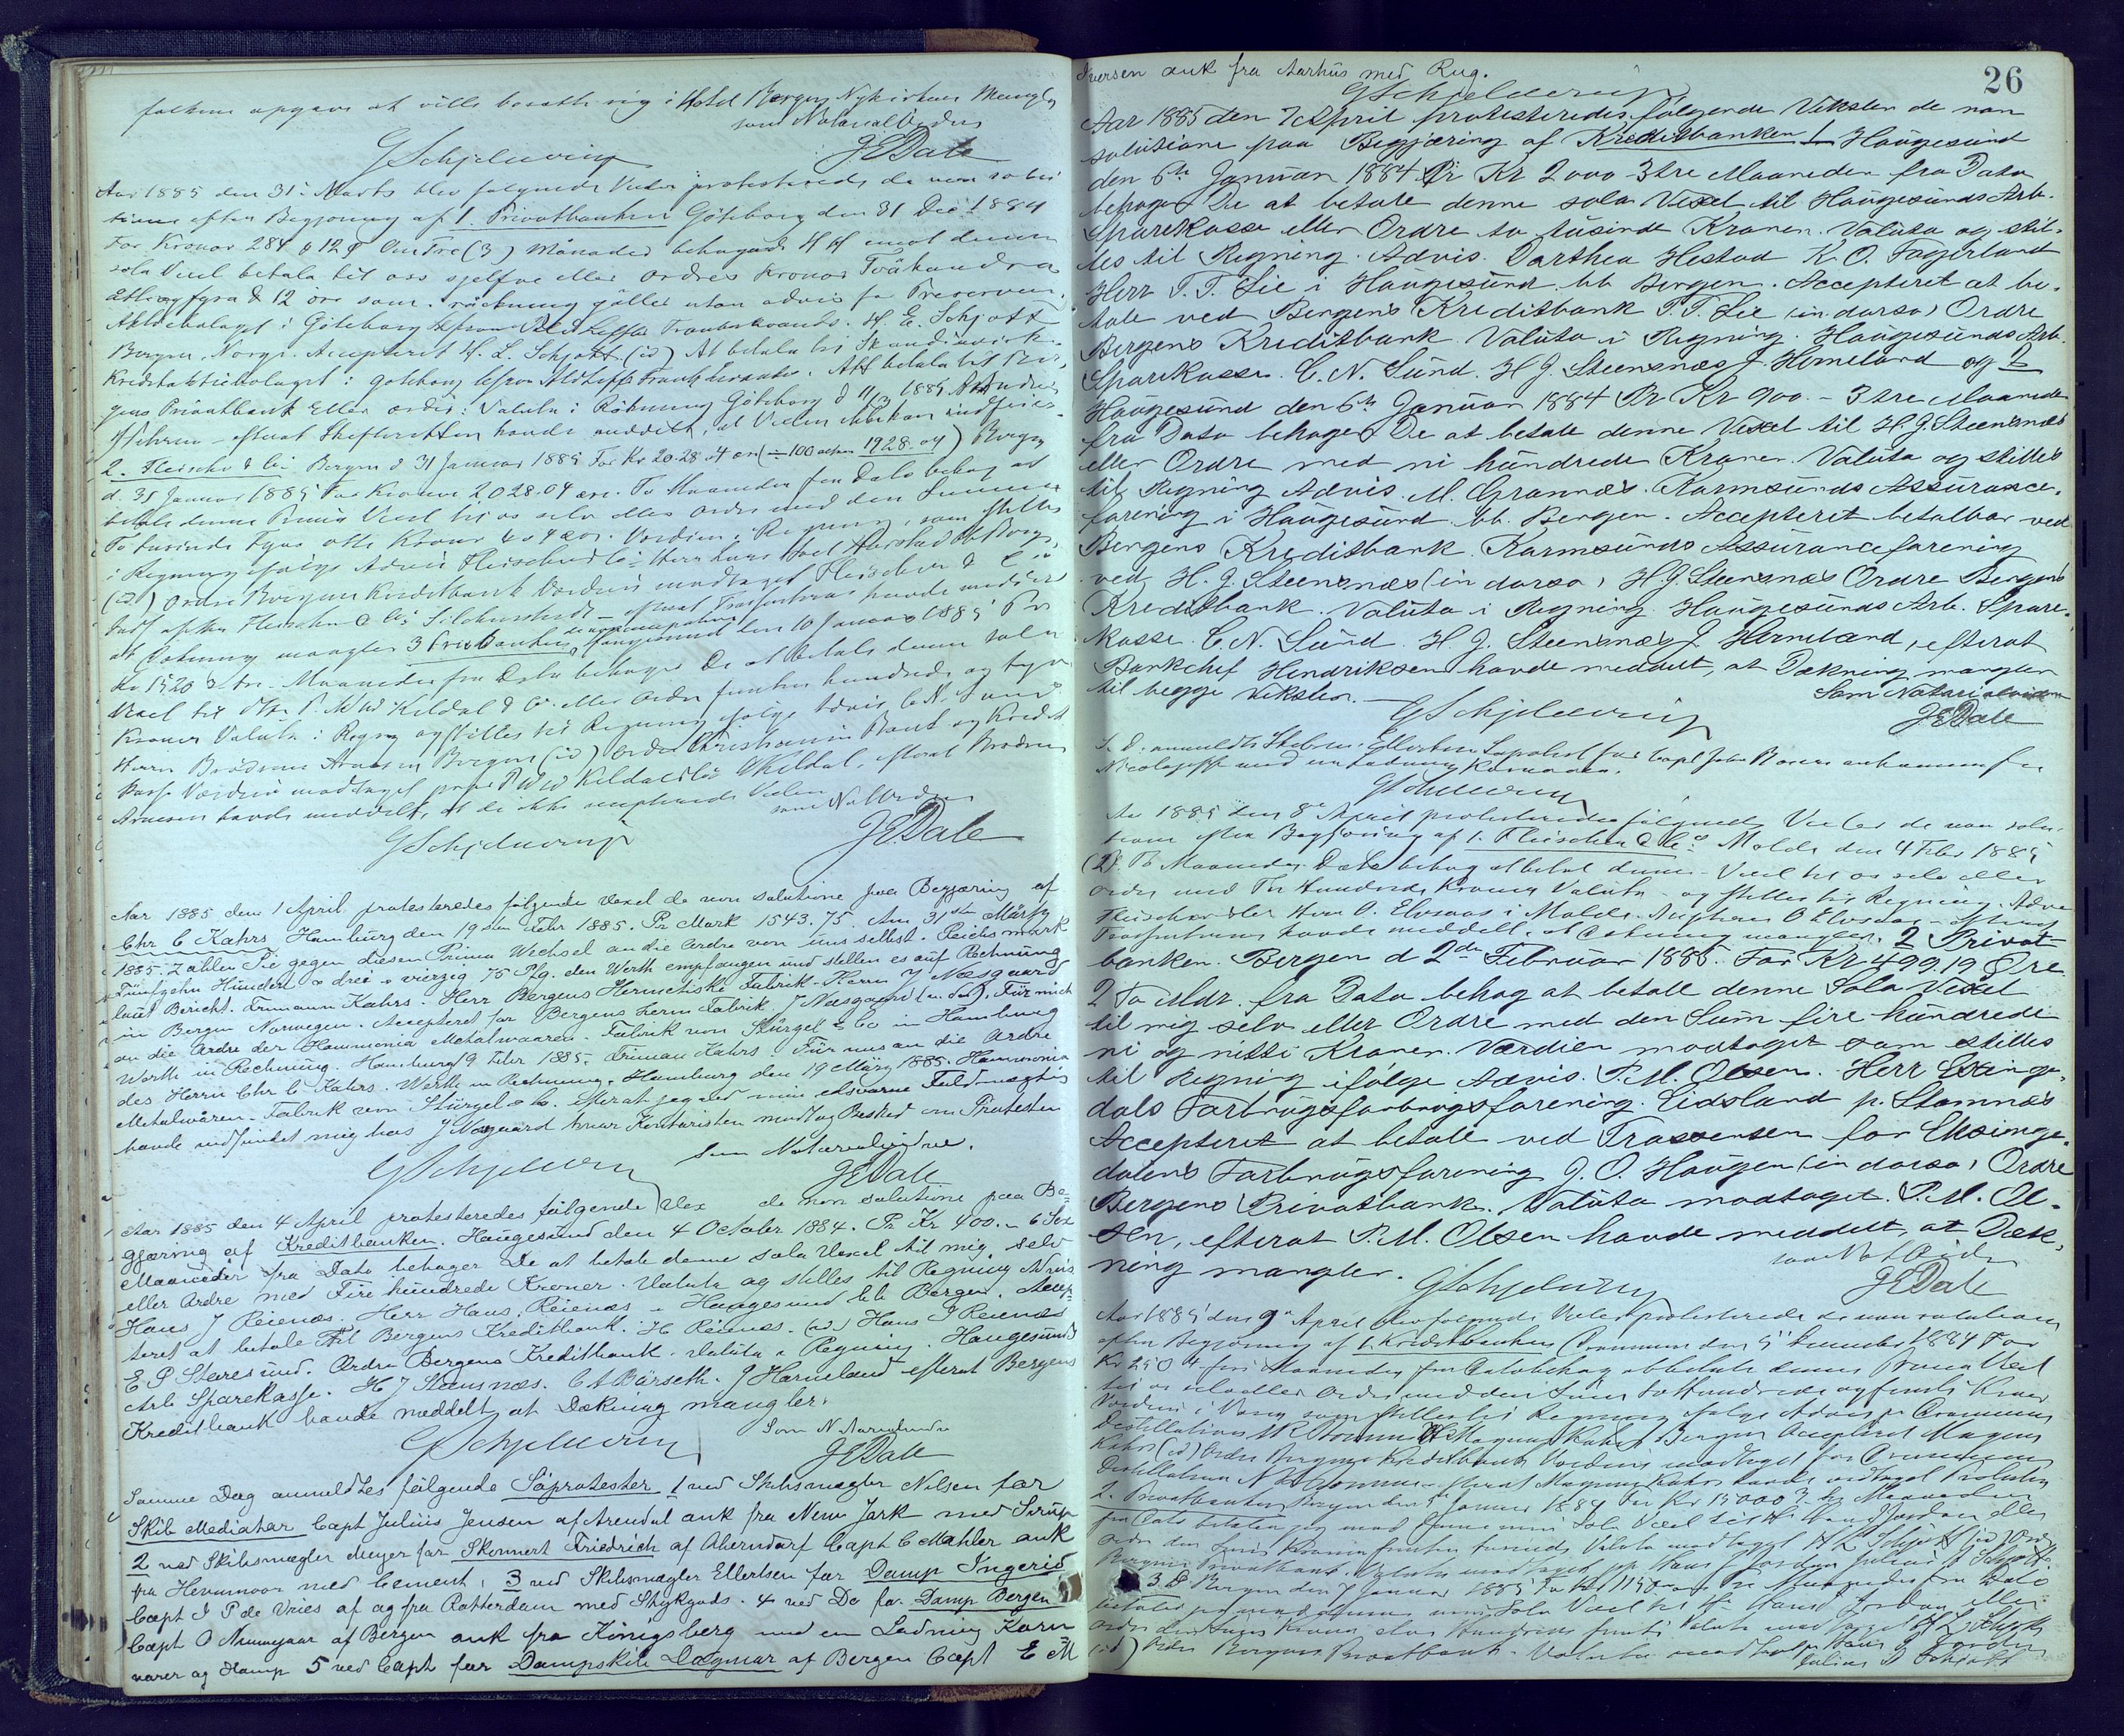 falkum opgav at ville bosætte sig i Hotel Bergen Nykirkens Menighed
som Notarialvidner
GSchjelderup JEDale
Aar 1885 den 31te Marts blev følgende Vexler protesterede de non solu-
tione efter Begjæring af 1. Privatbanken Göteborg den 31 Dec 1884
For Kronor 284 & 12 Om Tre (3) Månader behagade H H emot denna
sola Vexel betala till oss sjelfve eller ordres Kronor Tvåhundra
åttiofyra & 12 öre som i räkning ställes utan advis
Aktiebolaget i Göteborg H. L. Schjøtt
Bergen, Norge. Accepteret H. L. Schjøtt (id) At betala til Skandinaviska
Kredietaktiebolaget i Göteborg. Att betala till Ber-
gens Privatbank Eller ordres: Valuta i Räkning Göteborg d 11/3 1885
efterat Skifteretten havde meddelt, at Vexlen ikke kan indfries
2. Fleischer & Co Bergen d 31 Januar 1885 For Kr 2028.04 øre (÷ 100 1928.04) Bergen
d. 31 Januar 1885 For Kroner 2,028.04 øre. To Maaneder fra Dato behag at
betale denne Prima Vexel til os selv eller ordre med den Summa
To tusinde tyve otte Kroner 4 øre. Værdien i Regning, som stilles
i Regning ifølge Advis Fleischer & Co Herr
(id) Ordre Bergens Kreditbank Værdien modtaget Fleischer & Co
efterat Trassenterne havde meddelt
at Dækning mangler 3 Privatbanken Haugesund den 10 Januar 1885 Pr
Kr 1520 3 tre Maaneder fra Dato behager De at betale denne sola
Vexel til Hr P. M W Kildal & Co eller Ordre femten hundrede og tyve
Kroner Valuta i Regng og stilles til Regning ifølge Advis C. N. Sund
Herrer Brødrene Arnesen Bergen (id) Ordre Christiania Bank og Kredit
Kasse Værdien modtaget Kildal & Co Kildal, efterat Brødrene
Arnesen havde meddelt, at de ikke accepterede Vexlen
som NotVidner
GSchjelderup JEDale
Aar 1885 den 1 April protesteredes følgende Vexel de non solutione paa Begjæring af
Chr C Kahrs Hamburg den 19den Febr 1885. Pr Mark 1543.75. Am 31sten März
1885. Zahlen Sie gegen diesen Prima Wechsel an die Ordre von uns selbst. Reichsmark
Fünfzehn Hundert & drei & vierzig 75 Pfg. den Werth empfangen und stellen es auf Rechnung
laut Bericht. Trumann Kahrs. Herr Bergens Hermetiske Fabrik. Herrn J Næsgaard
in Bergen Norwegen. Accepteret for Bergens Herm Fabrik J Næsgaard (in dor). Für mich
an die Ordre der Hammonia Metalwaaren-Fabrik von Stürgel & Co in Hamburg
Werth in Rechnung. Hamburg 9 Febr 1885. Truman Kahrs. Für uns an die Ordre
des Herrn Chr C Kahrs. Werth in Rechnung. Hamburg den 19 März 1885. Hammonia
Metalwaren-Fabrik von Stürgel & Co. Efterat jeg ved min edsvorne Fuldmægtig
havde indfundet mig hos J Næsgaard hvor Kontoristen modtog Besked om Protesten
Som Notarialvidne.
GSchjelderup JEDale
Aar 1885 den 4 April protesteredes følgende Vex de non solutione paa Be-
gjæring af Kreditbanken. Haugesund den 4 October 1884. Pr Kr 400.- 6 Sex
Maaneder fra Dato behager De at betale denne sola Vexel til mig selv
eller Ordre med Fire hundrede Kroner. Valuta og stilles til Regning Advis
Hans J Reienæs. Herr Hans Reienæs i Haugesund bb Bergen. Accep-
teret at betale Til Bergens Kreditbank. H. Reienæs. (id) Hans J Reienæs
E P Staresund. Ordre Bergens Kreditbank. Valuta i Regning. Haugesunds
Arb Sparekasse. H J Steensnæs. C A Børseth. J Hemeland efterat Bergens
Kreditbank havde meddelt, at Dækning mangler.
Som Notarialvidne
GSchjelderup JEDale
Samme Dag anmeldtes følgende Søprotester 1 ved Skibsmægler Nilsen for
Skib Mediator Capt Julius Jensen af Arendal ank fra New Jork med Sirup
2 ved Skibsmægler Meyer for Skonnert Friedrich af Oberndorf Capt C Mahler ank
fra Hemmoor med Cement, 3 ved Skibsmægler Ellertsen for Damp Ingerid
Capt I P de Vries af og fra Rotterdam med Stykgods. 4 ved Do for Damp Bergen
Capt O Nimmejaar af Bergen ank fra Königsberg med en Ladning Korn
varer og Hamp 5 ved Capt for Dampskib Dagmar af Bergen Capt E M
26
Iversen ank fra Aarhus med Rug.
GSchjelderup
Aar 1885 den 7 April protesteredes følgende Veksler de non
solutione paa Begjæring af Kreditbanken 1 Haugesund
den 6te Januar 1884 Pr Kr 2000 3 tre Maaneder fra Dato
behager De at betale denne sola Vexel til Haugesunds Arb.
Sparekasse eller Ordre to tusinde Kroner. Valuta og stil-
les til Regning. Advis. Dorthea Hestad K. O. Fagerland
Herr T. T. Lie i Haugesund. bb Bergen. Accepteret at be-
tale ved Bergens Kreditbank T. T. Lie (in dorso) Ordre
Bergens Kreditbank. Valuta i Regning. Haugesunds Arb.
Sparekasse. C. N. Sund. H J. Steensnæs J. Hemeland og 2
Haugesund den 6te Januar 1884 Pr Kr 900.- 3 tre Maaneder
fra Dato behager De at betale denne Vexel til H. J. Steensnæs
eller Ordre med ni hundrede Kroner. Valuta og stilles
til Regning Advis. M. Grannæs. Karmsunds Assurance-
forening i Haugesund. bb. Bergen. Accepteret betalbar ved
Bergens Kreditbank. Karmsunds Assuranceforening
ved H. J. Steensnæs (in dorso) H. J. Steensnæs Ordre Bergens
Kreditbank. Valuta i Regning. Haugesunds Arb. Spare-
kasse. C. N. Sund. H. J. Steensnæs J. Hemeland, efterat
Bankchef Hendriksen havde meddelt, at Dækning mangler
til begge Veksler.
Som Notarialvidne
GSchjelderup JEDale
S. D. anmeldte Skibsm. Ellertsen Søprotest for Capt
Nicolajeff med en Ladning Kornvarer.
GSchjelderup
Aar 1885 den 8de April protesteredes følgende Vexler de non solu-
tione efter Begjæring af 1. Fleischer & Co Molde den 4 Febr 1885
(2). To Maaneder Dato behag at betale denne Vexel til os selv eller
Ordre med Tre Hundrede Kroner Valuta og stilles til Regning. Advis
Fleischer Herr O. Elvsaas i Molde. O Elvsaas - efterat
Trassenterne havde meddelt, at Dækning mangler. 2 Privat
banken. Bergen d 2den Februar 1885. For Kr 499.19 Øre
2 To Mdr. fra Dato behag at betale denne Sola Vexel
til mig selv eller Ordre med den Sum fire hundrede
ni og nitti Kroner. Værdien modtaget som stilles
til Regning ifølge Advis. P. M. Olsen. Herr Exinge-
dals Forbrugsforbrugsforening. Eidsland p. Stamnæs
Accepteret at betale ved Trassenten for Eksinge-
dalens Forbrugsforening J. O. Haugen (in dorso) Ordre
Bergens Privatbank. Valuta modtaget. P. M. Ol-
sen, efterat P. M. Olsen havde meddelt, at Dæk-
ning mangler.
som Not Vidn
GSchjelderup JEDale
Aar 1885 den 9de April blev følgende Vexler protesterede de non solutione
efter Begjæring af 1. Kreditbanken Drammen den 5 December 1884 For
Kr 250 4 fire Maaneder fra Dato behag at betale denne Prima Vexel
til os selv eller Ordre med den Sum to Hundrede og femti Kroner
Værdien i Varer som stilles til Regning ifølge Advis pr Drammens
Destillation Hr Magnus Kahrs Bergen Accepteret Magnus
Kahrs (id) Ordre Bergens Kreditbank Værdien modtaget for Drammens
Destillation efterat Magnus Kahrs havde modtaget Protesten
2. Privatbanken Bergen den 5 Januar 1884 For Kr 15000 3 tre Maaneder
fra Dato betaler jeg mod denne min Sola Vexel til Hr Hans Jordan eller
Ordre den Sum Kroner femten tusinde Valuta modtaget H L Schjøtt (id) Ordre
Bergens Privatbank. Valuta modtaget Hans J Jordan Julius D Schjøtt
3. D Bergen den 7 Januar 1885 For Kr 1150 Tre Maaneder fra Dato
betaler jeg mod denne min Sola Vexel til Hr Hans Jordan eller
Ordre den Sum Kroner elve Hundrede femti Valuta modtaget H L Schjøtt
(id) Ordre Bergens Privatbank. Valuta modtaget Hans J Jordan
Julius D Schjøtt